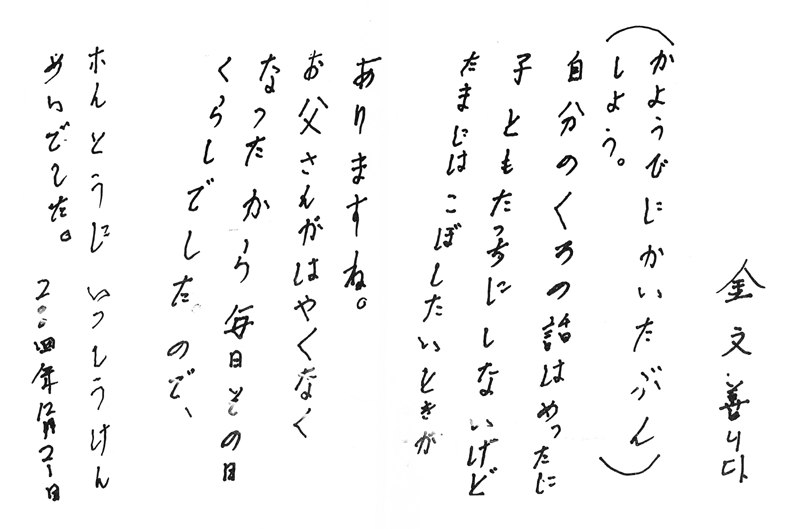 金文善
（かようびにかいたぶん
しよう。）
自分のくろの話はめったに
子ともたっちにしないげど
たまにはこぼしたいときが
ありますね。
お父さんがはやくなく
なったから毎日その日
くらしでしたので、
ホんとうにいっしうけん
めいでした。 2〇〇四年12月21日